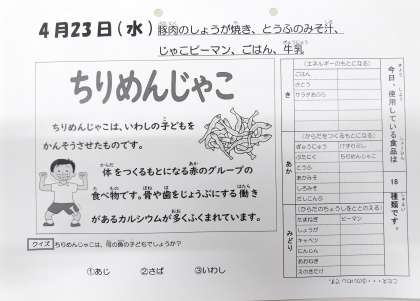 4月23日(水)豚肉のしょうが焼き、とうふのみそ汁、
じゃこピーマン、ごはん、牛乳
ちりめんじゃこ
ちりめんじゃこは、いわしの子どもを
かんそうさせたものです。
体をつくるもとになる赤のグループの
食べ物です。骨や歯をじょうぶにする働き
があるカルシウムが多くふくまれています。
クイズ ちりめんじゃこは、何の魚の子どもでしょうか?
①あじ ②さば ③いわし
今日、使用している食品は
18
種類です。
き
(エネルギーのもとになる)
ごはん
さとう
サラダあぶら
あか
(からだをつくるもとになる)
ぎゅうにゅう けずりぶし
ぶたにく ちりめんじゃこ
とうふ
あかみそ
しろみそ
だしこんぶ
みどり
(からだのちょうしをととのえる)
たまねぎ ピーマン
しょうが
キャベツ
にんじん
あおねぎ
えのきだけ